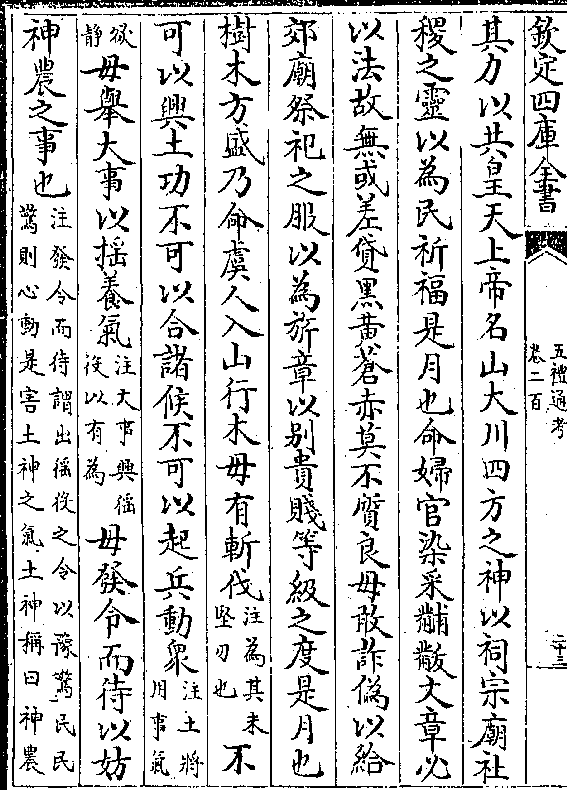 欽定四庫全書
五禮通考
卷二百
二十三
其力以共皇天上帝名山大川四方之神以祠宗廟社
稷之靈以為民祈福是月也命婦官染采黼黻文章必
以法故無或差貸黑黃蒼赤莫不質良毋敢詐偽以給
郊廟祭祀之服以為旂章以別貴賤等級之度是月也
樹木方盛乃命虞人入山行木毋有斬伐注為其未堅刃也不
可以興土功不可以合諸侯不可以起兵動衆注土將用事氣
欲静毋舉大事以揺養氣注大事興徭役以有為毋發令而待以妨
神農之事也注發令而待謂出徭役之令以豫驚民民驚則心動是害土神之氣土神稱曰神農